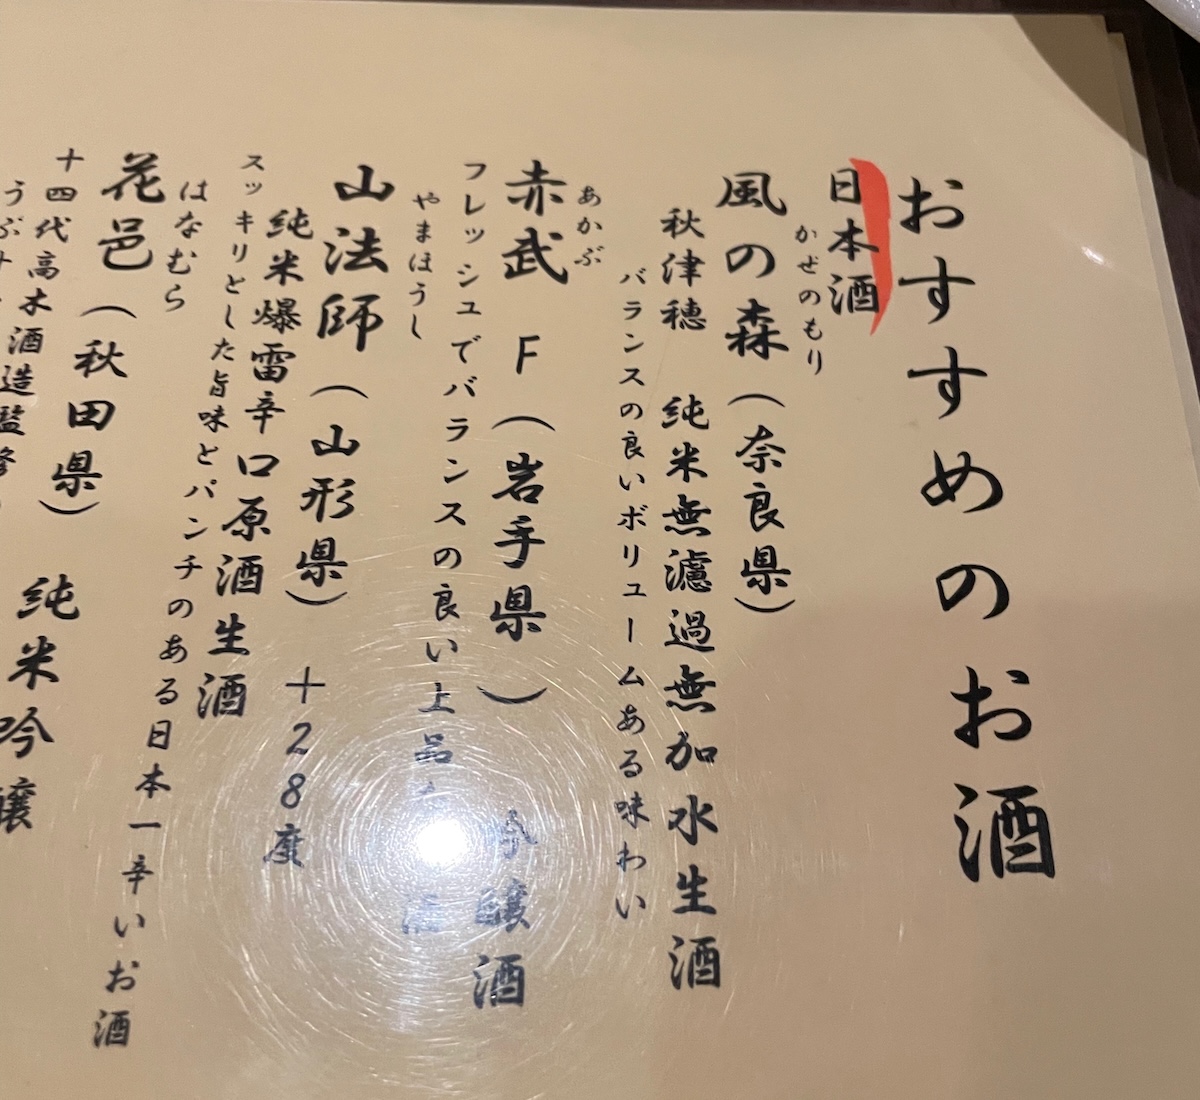 おすすめのお酒
日本酒
かぜのもり
風の森（奈良県）
秋津穂 純米無濾過無加水生酒
バランスの良いボリュームある味わい
あかぶ
赤武 F（岩手県） 吟醸酒
フレッシュでバランスの良い上品 酒
やまほうし
山法師（山形県） +28度
純米爆雷辛口原酒生酒
スッキリとした旨味とパンチのある日本一辛いお酒
はなむら
花邑（秋田県） 純米吟醸
十四代高木酒造監修
うぶ